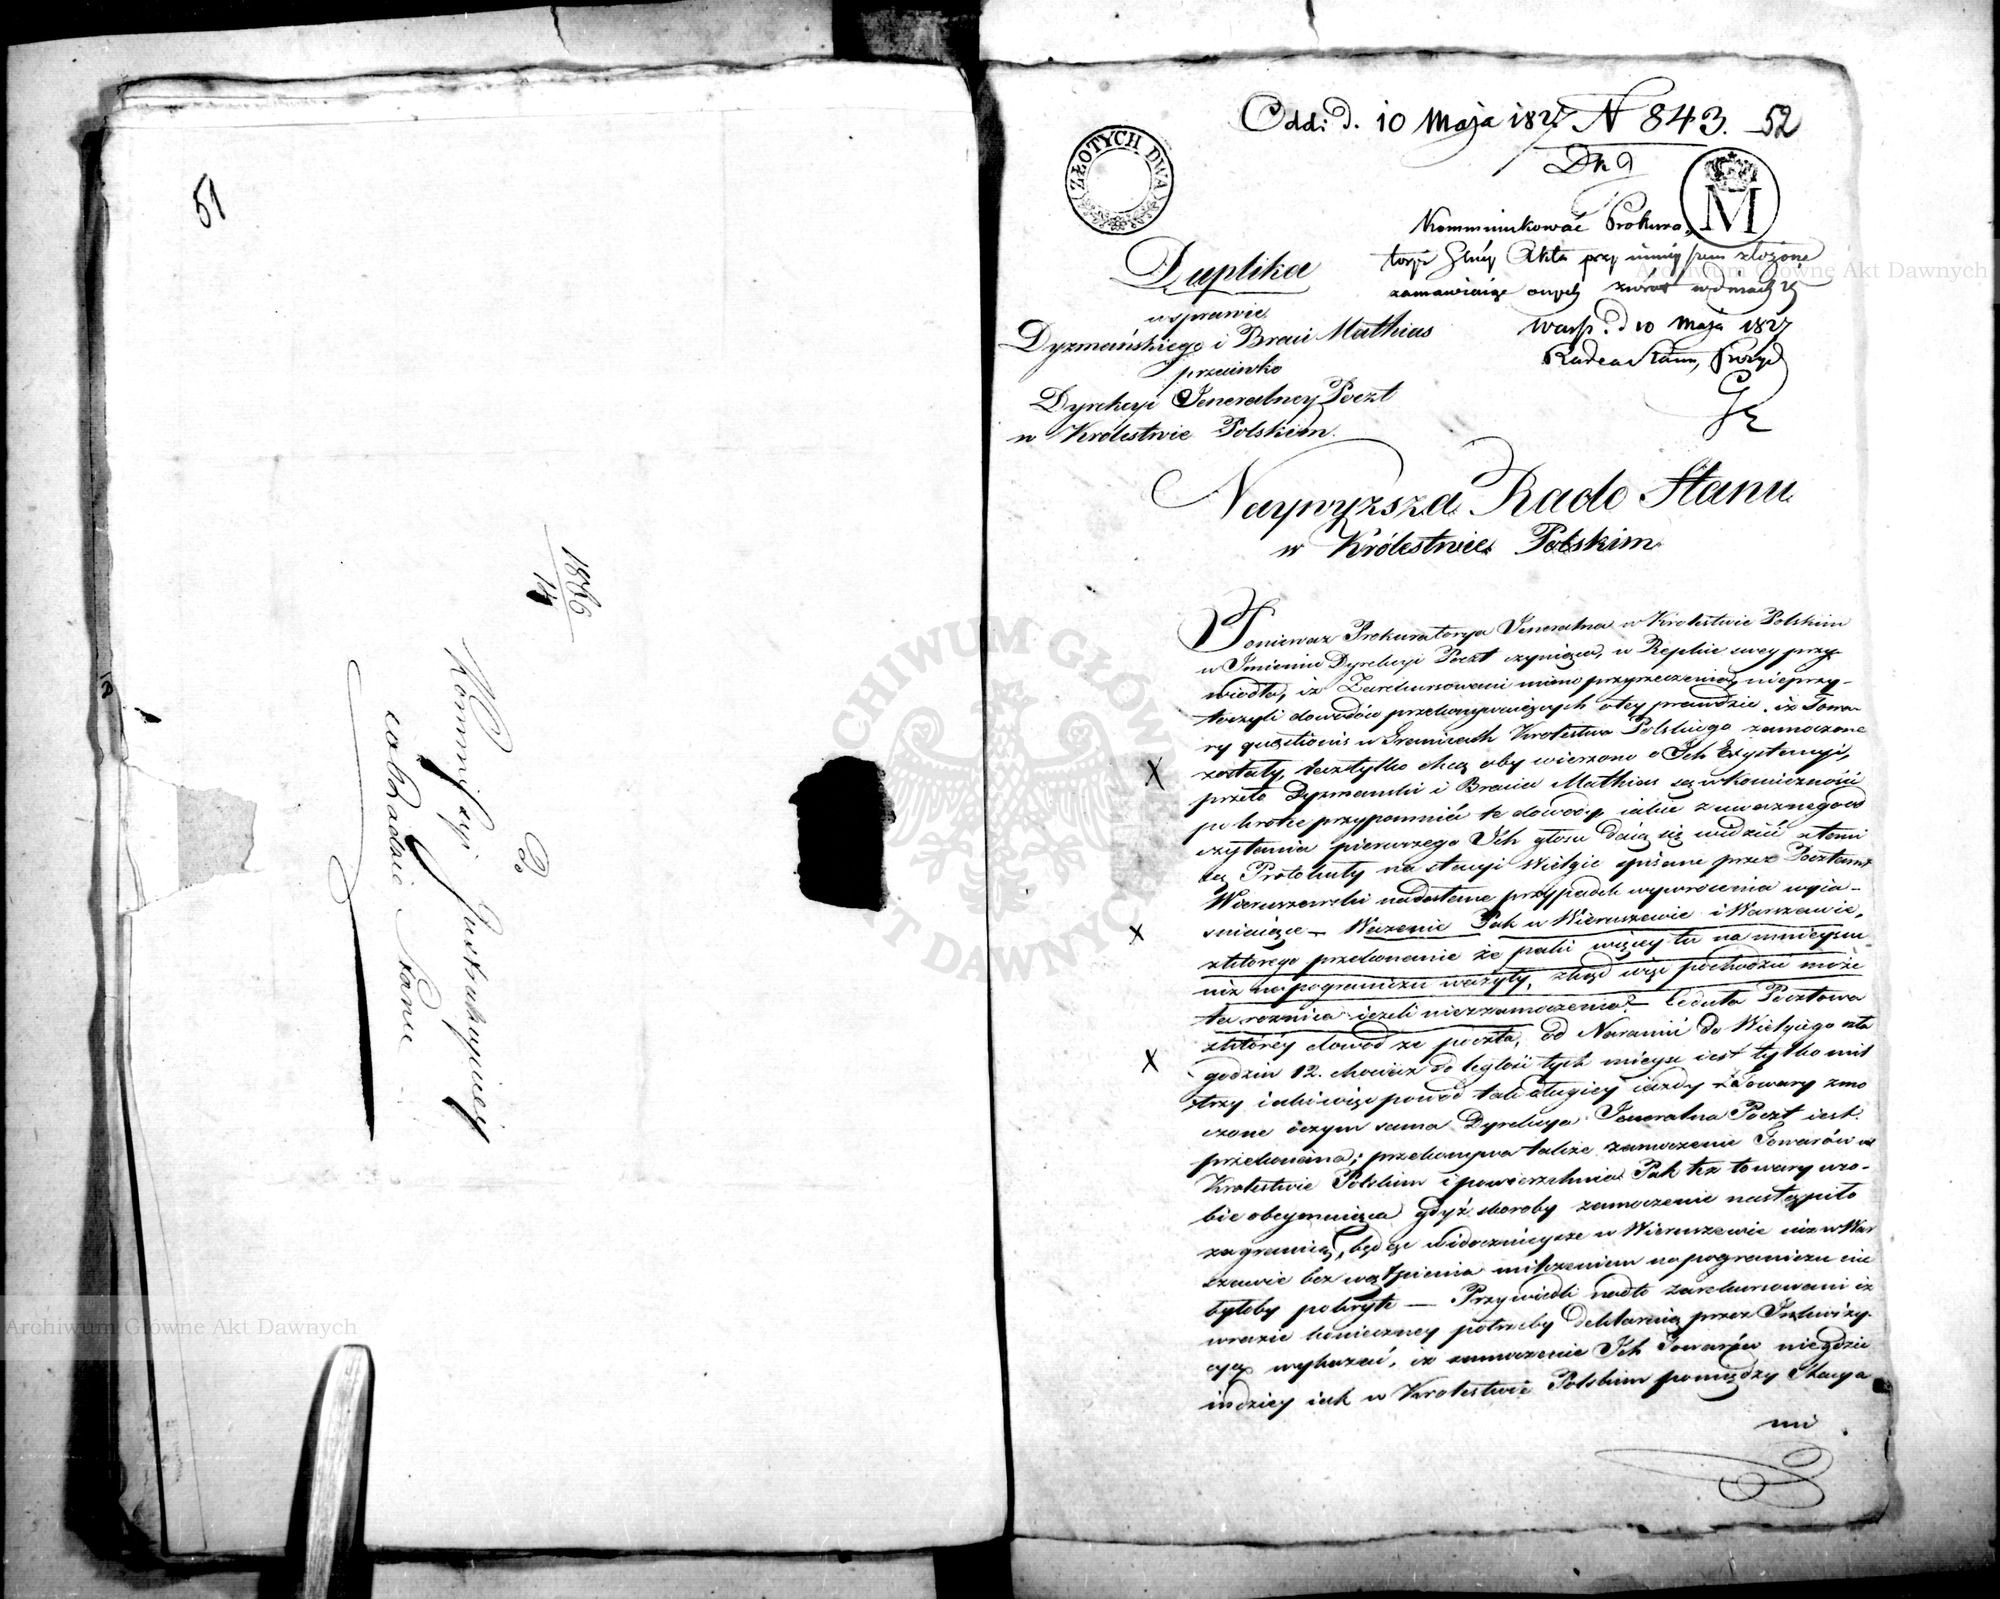 51
1886
14
Do
Kommissyi Instrukcyjney
w Radzie Stanu
Oddi: d. 10 Maja 1827 N 843. 52
Dn 9
ZŁOTYCH DWA
M
Kommunikować Prokura-
toryi Głney Akta przy ninieyszem złożone
zamawiaiąc onych zwrot w dniach
Warsz. d 10 Maja 1827
Radca Stanu,
Duplika
w sprawie
Dyzmańskiego i Braci Mathias
przeciwko
Dyrekcyi Jeneralney Poczt
w Królestwie Polskiem.
Naywyższa Rado Stanu
w Królestwie Polskim
Ponieważ Prokuratorya Jeneralna w Krolestwie Polskim
w Imieniu Dyrekcyi Poczt czyniąca, w Replice swey przy-
wiodła, iż Zarekursowani mimo przyrzeczenia nieprzy-
toczyli dowodów przekonywaiących o tey prawdzie, iż Towa-
ry questionis w Granicach Krolestwa Polskiego zamoczone
zostały, lecz tylko chcą aby wierzono o Ich Exystencyi,
przeto Dyzmański i Bracia Mathias są w konieczności
pokrotce przypomnić te dowody, iakie z uważnego od
czytania pierwszego Ich głosu daią się widzieć a temi
są Protokuły na stacyi Wielgie spisane przez Pocztamt
Wieruszewski nadesłane przypadek wywrocenia wyia-
sniaiące — Ważenie Pak w Wieruszewie i Warszawie,
z którego przekonanie że paki więcey tu na mnieyszu
niż na pograniczu ważyły, zkąd więc pochodzić może
ta roznica ieżeli nie z zamoczenia? — Ceduła Pocztowa
z którey dowod że poczta, od Naramic do Wielgiego szła
godzin 12. chociaż odległość tych mieysc iest tylko mil
trzy iaki więc powod tak długiey iazdy — Towary zmo
czone o czym sama Dyrekcya Jeneralna Poczt iest
przekonana; przekonywa także zamoczenie Towarów w
Krolestwie Polskim i powierzchnia Pak też towary w so-
bie obeymuiąca gdyż skoroby zamoczenie nastąpiło
za granicą, będąc widocznieysze w Wieruszewie niż w War
szawie bez wątpienia milczeniem na pograniczu nie
byłoby pokryte — Przywiedli nadto zarekursowani iż
w razie konieczney potrzeby deklaruią przez Inkwizy-
cyą wykazać, iż zamoczenie Ich Towarów niegdzie
indziey iak w Krolestwie Polskim pomiędzy Stacya
mi
ARCHIWUM GŁÓWNE AKT DAWNYCH
Archiwum Główne Akt Dawnych
Archiwum Główne Akt Dawnych